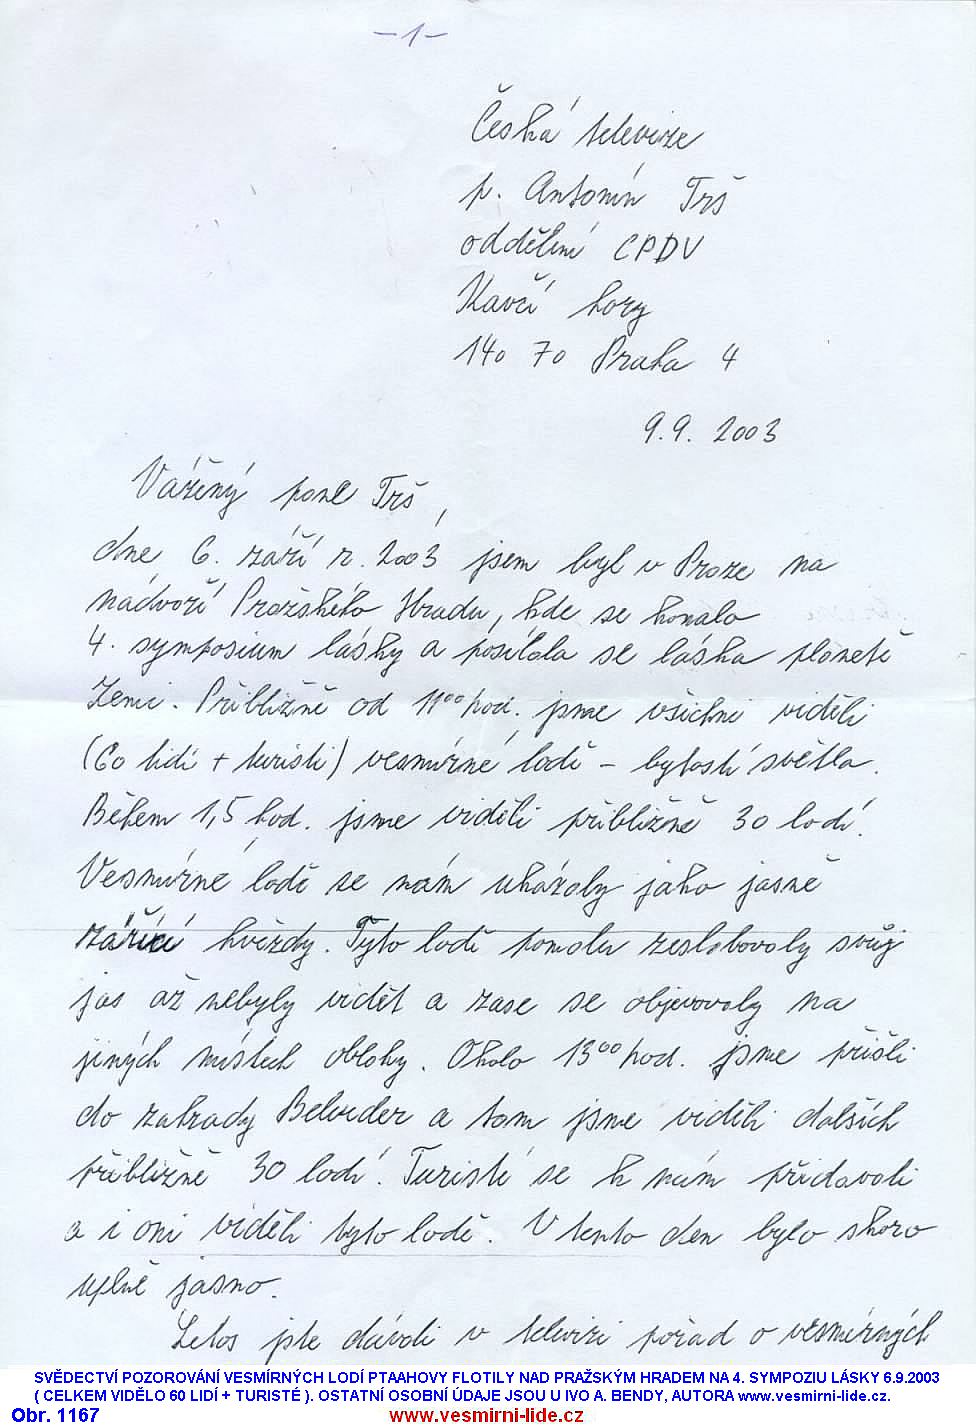 -1-
Česká televize
p. Antonín Trš
oddělení CPDV
Kavčí hory
140 70 Praha 4
9.9. 2003
Vážený pane Trš,
dne 6. září r. 2003 jsem byl v Praze na
nádvoří Pražského Hradu, kde se konalo
4. symposium lásky a posílala se láska planetě
Zemi. Přibližně od 11⁰⁰ hod. jsme všichni viděli
(60 lidí + turisti) vesmírné lodě – bytosti světla.
Během 1,5 hod. jsme viděli přibližně 30 lodí.
Vesmírné lodě se nám ukázaly jako jasně
zářící hvězdy. Tyto lodě pomalu zeslabovaly svůj
jas až nebyly vidět a zase se objevovaly na
jiných místech oblohy. Okolo 13⁰⁰ hod. jsme přišli
do zahrady Belveder a tam jsme viděli dalších
přibližně 30 lodí. Turisté se k nám přidavali
a i oni viděli tyto lodě. V tento den bylo skoro
uplně jasno.
Letos jste dávali v televizi pořad o vesmírných
SVĚDECTVÍ POZOROVÁNÍ VESMÍRNÝCH LODÍ PTAAHOVY FLOTILY NAD PRAŽSKÝM HRADEM NA 4. SYMPOZIU LÁSKY 6.9.2003
( CELKEM VIDĚLO 60 LIDÍ + TURISTÉ ). OSTATNÍ OSOBNÍ ÚDAJE JSOU U IVO A. BENDY, AUTORA www.vesmirni-lide.cz.
Obr. 1167 www.vesmirni-lide.cz